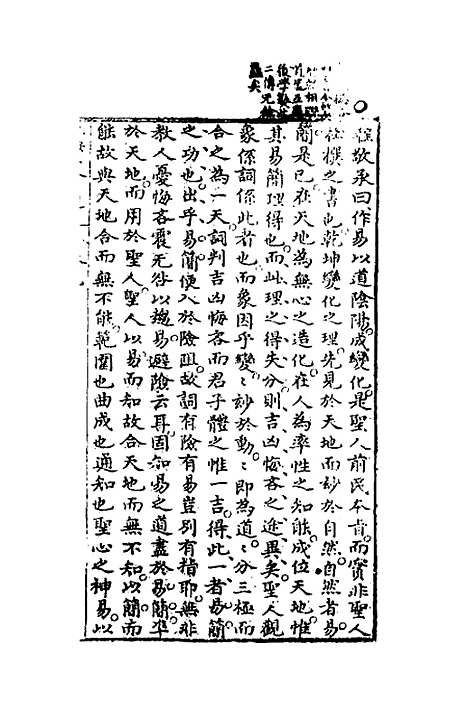 敬承曰作易以道陰陽成變化是聖人前民本旨而實非聖人
杜撰之書也乾坤變化之理先見於天地而玅於自然自然者易
簡是已在天地為無心之造化在人為率性之知能成位天地惟
其易簡理得也而此理之得失分則吉凶悔吝之途異矣聖人觀
象係詞係此者也而象因乎變變玅於動動即為道道分三極而
合之為一天詞判吉凶悔吝而君子體之惟一吉得此一者易簡
之功也出乎易簡便入於險阻故詞有險有易豈別有指耶無非
教人憂悔吝震无咎以趨易避險云耳固知易之道盡於易簡準
於天地而用於聖人聖人以易而知故合天地而無不知以簡而
能故與天地合而無不能範圍也曲成也通知也聖心之神易以